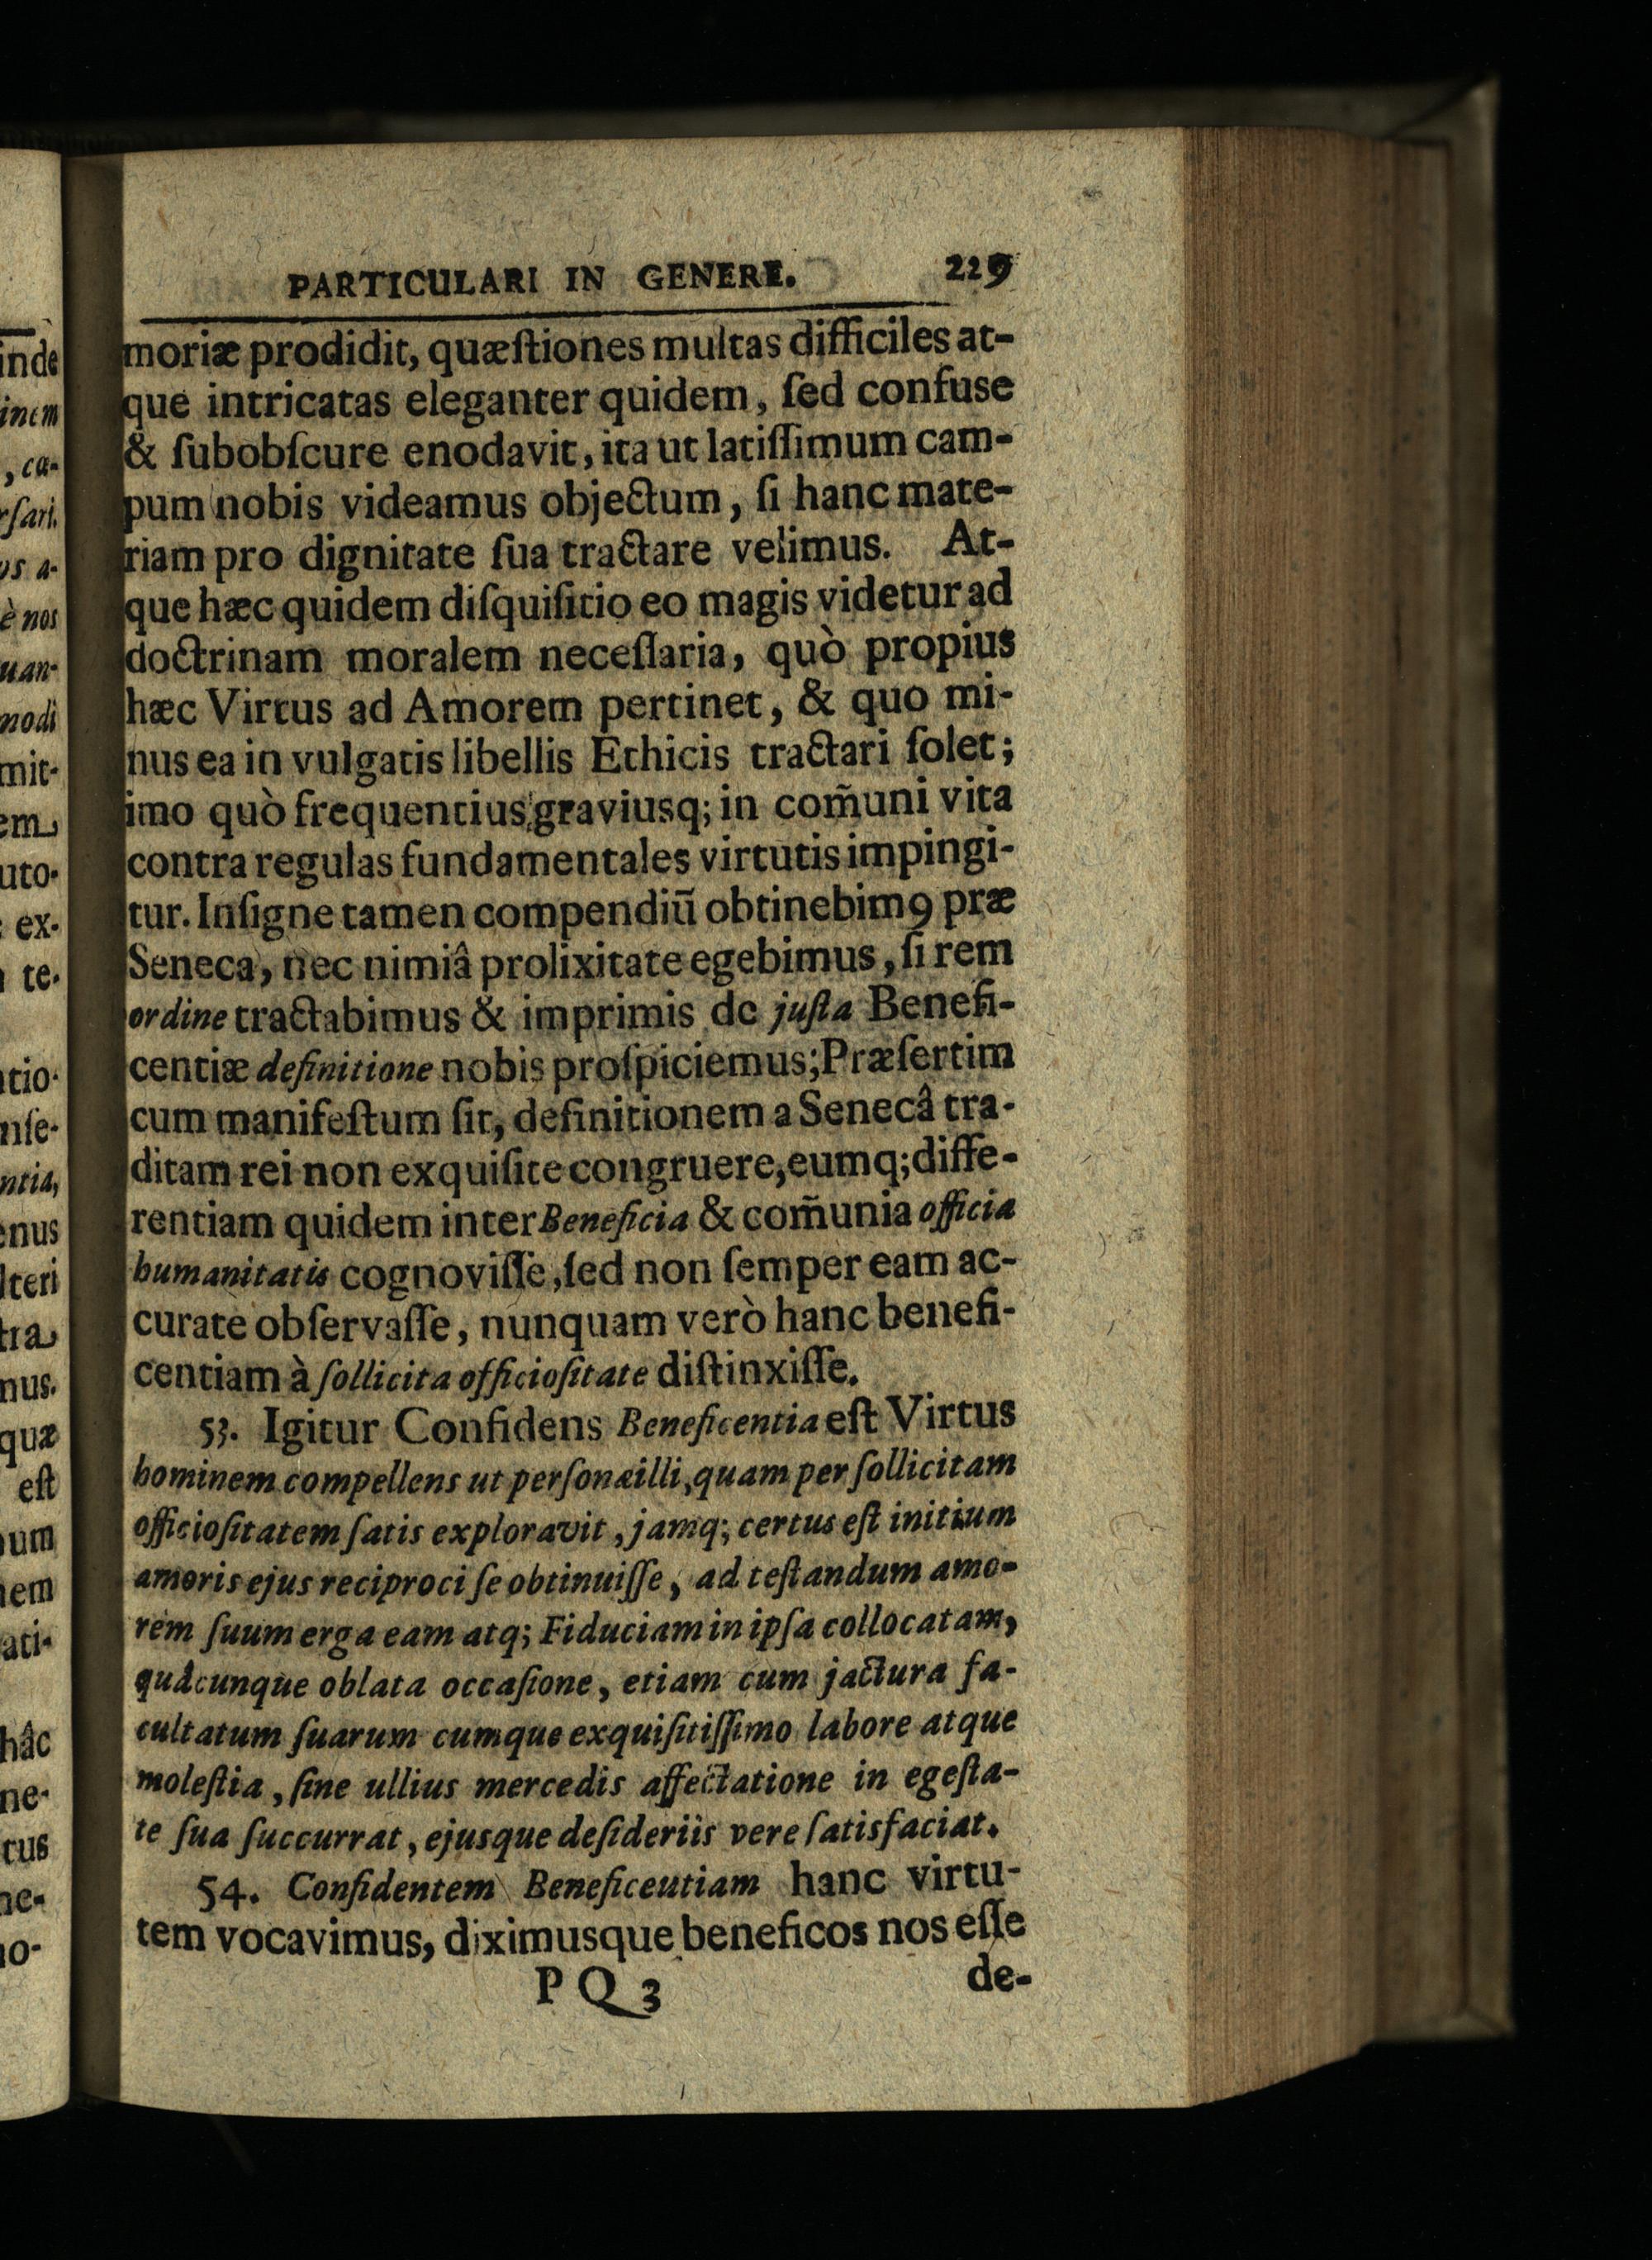 PARTICULARI IN GENERE. 229
moriæ prodidit, quæſtiones multas difficiles at-
que intricatas eleganter quidem, ſed confuse
& ſubobſcure enodavit, ita ut latiſſimum cam-
pum nobis videamus objectum, ſi hanc mate-
riam pro dignitate ſua tractare velimus. At-
que hæc quidem diſquiſitio eo magis videtur ad
doctrinam moralem neceſſaria, quò propius
hæc Virtus ad Amorem pertinet, & quo mi-
nus ea in vulgatis libellis Ethicis tractari ſolet;
imo quò frequentius graviusq; in com̃uni vita
contra regulas fundamentales virtutis impingi-
tur. Inſigne tamen compendiũ obtinebimꝰ præ
Seneca, nec nimiâ prolixitate egebimus, ſi rem
ordine tractabimus & imprimis de juſta Benefi-
centiæ definitione nobis proſpiciemus; Præſertim
cum manifeſtum ſit, definitionem a Senecâ tra-
ditam rei non exquiſite congruere, eumq; diffe-
rentiam quidem inter Beneficia & com̃unia officia
humanitatis cognoviſſe, ſed non ſemper eam ac-
curate obſervaſſe, nunquam verò hanc benefi-
centiam à ſollicita officioſitate diſtinxiſſe.
53. Igitur Confidens Beneficentia eſt Virtus
hominem compellens ut perſonæ illi, quam per ſollicitam
officioſitatem ſatis exploravit, jamq; certus eſt initium
amoris ejus reciproci ſe obtinuiſſe, ad teſtandum amo-
rem ſuum erga eam atq; Fiduciam in ipſa collocatam,
quâcunque oblata occaſione, etiam cum jactura fa-
cultatum ſuarum cumque exquiſitiſſimo labore atque
moleſtia, ſine ullius mercedis affectatione in egeſta-
te ſua ſuccurrat, ejusque deſideriis vere ſatisfaciat.
54. Confidentem Beneficeutiam hanc virtu-
tem vocavimus, diximusque beneficos nos eſſe
P Q 3 de-
inde
inem
, ca-
rſari.
os a-
è nos
uan-
modi
mit-
em
uto-
ex-
te-
tio-
nſe-
ntia,
enus
lteri
tra
mus.
quæ
eſt
um
nem
ati-
hâc
ne-
tus
ne-
no-